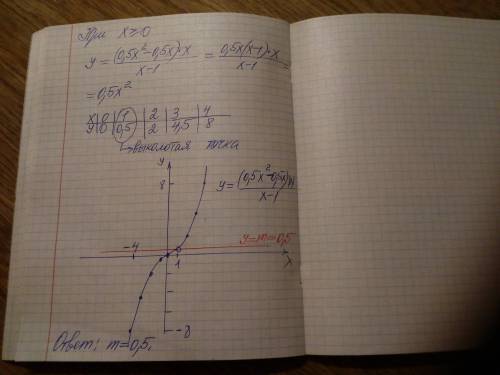 При x≥0
y = (0,5x²-0,5x)·x / x-1 = 0,5x(x-1)·x / x-1 =
= 0,5x²
x | 0 | 1 | 2 | 3 | 4
y | 0 | 0,5 | 2 | 4,5 | 8
↳выколотая точка
y
8
y = (0,5x²-0,5x) / x-1
y=m=0,5
-4
1
x
-8
Ответ: m=0,5.